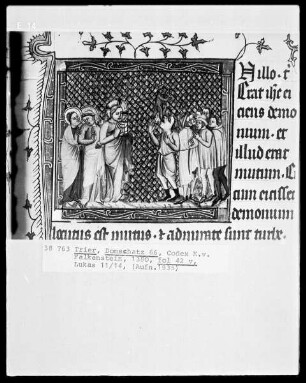 In illo. t
Erat ihc ei
ciens demo
nium. et
illud erat
mutum. C
um eiecisset
demonium
locutus est mutus. & admirate sunt turbe.
38 763 Trier, Domschatz 66, Codex K.v.
Falkenstein, 1380, fol 42 v,
Lukas 11/14, (Aufn.1939)